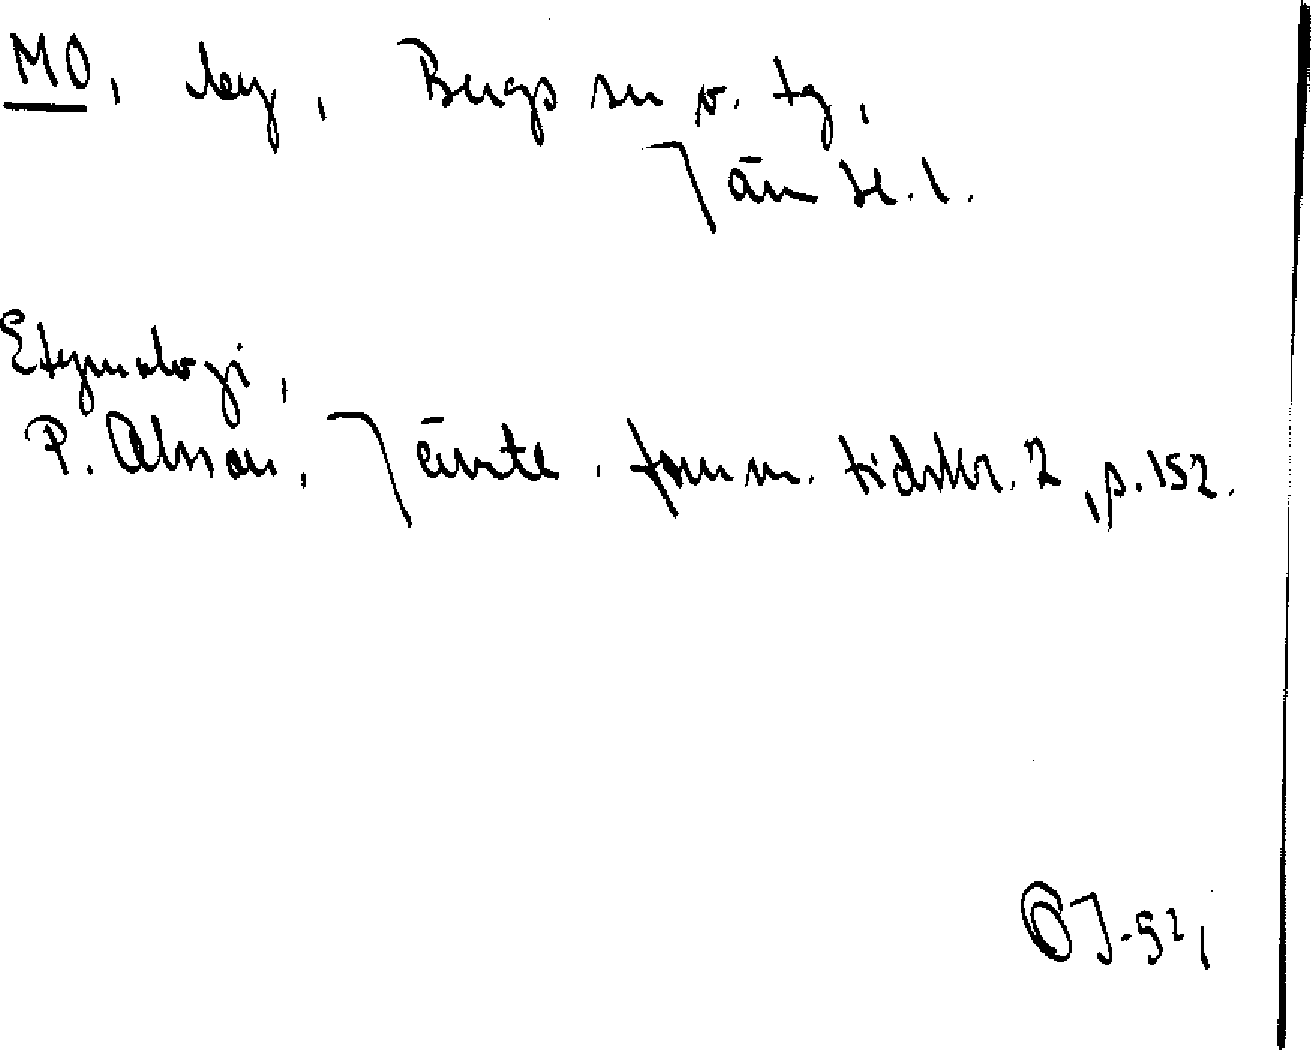 MO, by, Bergs sn o. tg,
Jäm sk. l.
Etymologi,
P. Olsson, Jämtl. fornm. tidskr. 2, p. 152.